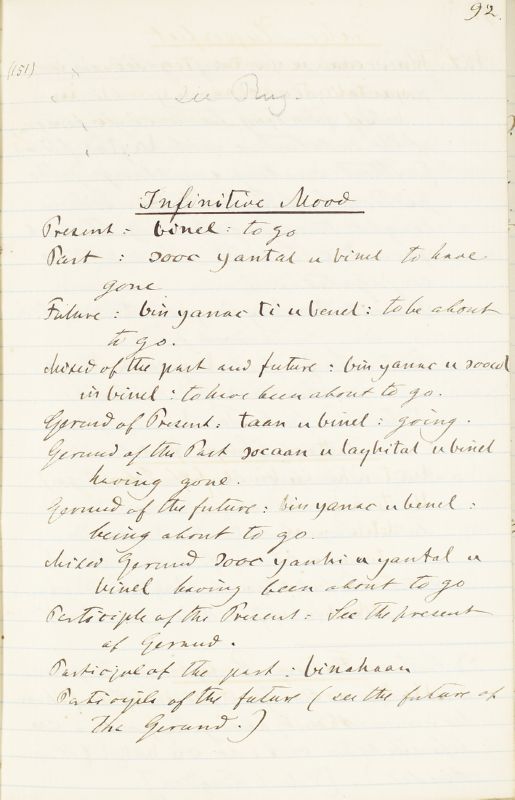 92.
(151)
see Prog.
Infinitive Mood
Present : binel : to go
Past : ɔooc yantal u binel to have
gone
Future : bin yanac ti u benel : to be about
to go.
Mixed of the past and future : bin yanac u ɔoocol
in binel : to have been about to go.
Gerund of Present : taan u binel : going.
Gerund of the Past ɔocaan u layhital u binel
having gone.
Gerund of the future : bin yanac u benel :
being about to go.
Mixed Gerund ɔooc yanhi u yantal u
binel having been about to go
Participle of the Present : See the present
of Gerund.
Participal of the past : binahaan
Participle of the future (see the future of
the Gerund.)